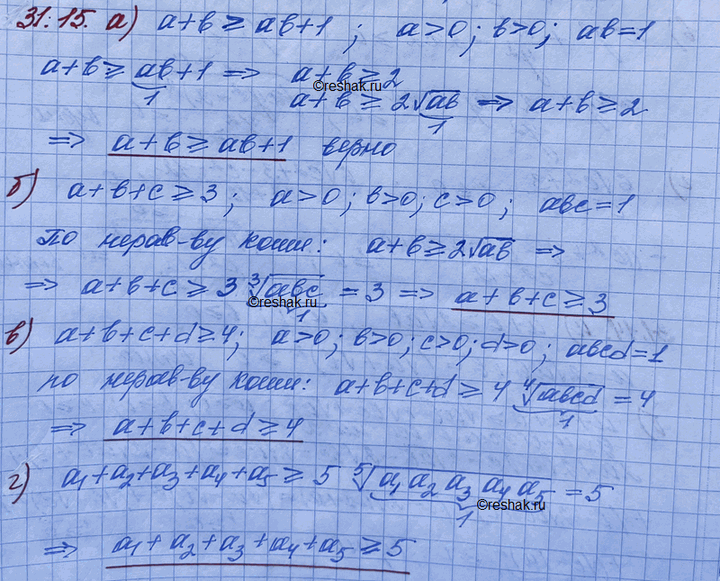 31.15. а) a+b ≥ ab+1 ; a>0; b>0; ab=1
a+b ≥ ab+1 => a+b ≥ 2
1
©reshak.ru
a+b ≥ 2√ab => a+b ≥ 2
1
=> a+b ≥ ab+1 верно
б) a+b+c ≥ 3 ; a>0; b>0; c>0; abc=1
по нерав-ву Коши: a+b ≥ 2√ab =>
=> a+b+c ≥ 3 ∛abc = 3 => a+b+c ≥ 3
1
©reshak.ru
в) a+b+c+d ≥ 4; a>0; b>0; c>0; d>0; abcd=1
по нерав-ву Коши: a+b+c+d ≥ 4 ∜abcd = 4
1
=> a+b+c+d ≥ 4
г) a₁+a₂+a₃+a₄+a₅ ≥ 5 ⁵√a₁ a₂ a₃ a₄ a₅ = 5
1
©reshak.ru
=> a₁+a₂+a₃+a₄+a₅ ≥ 5